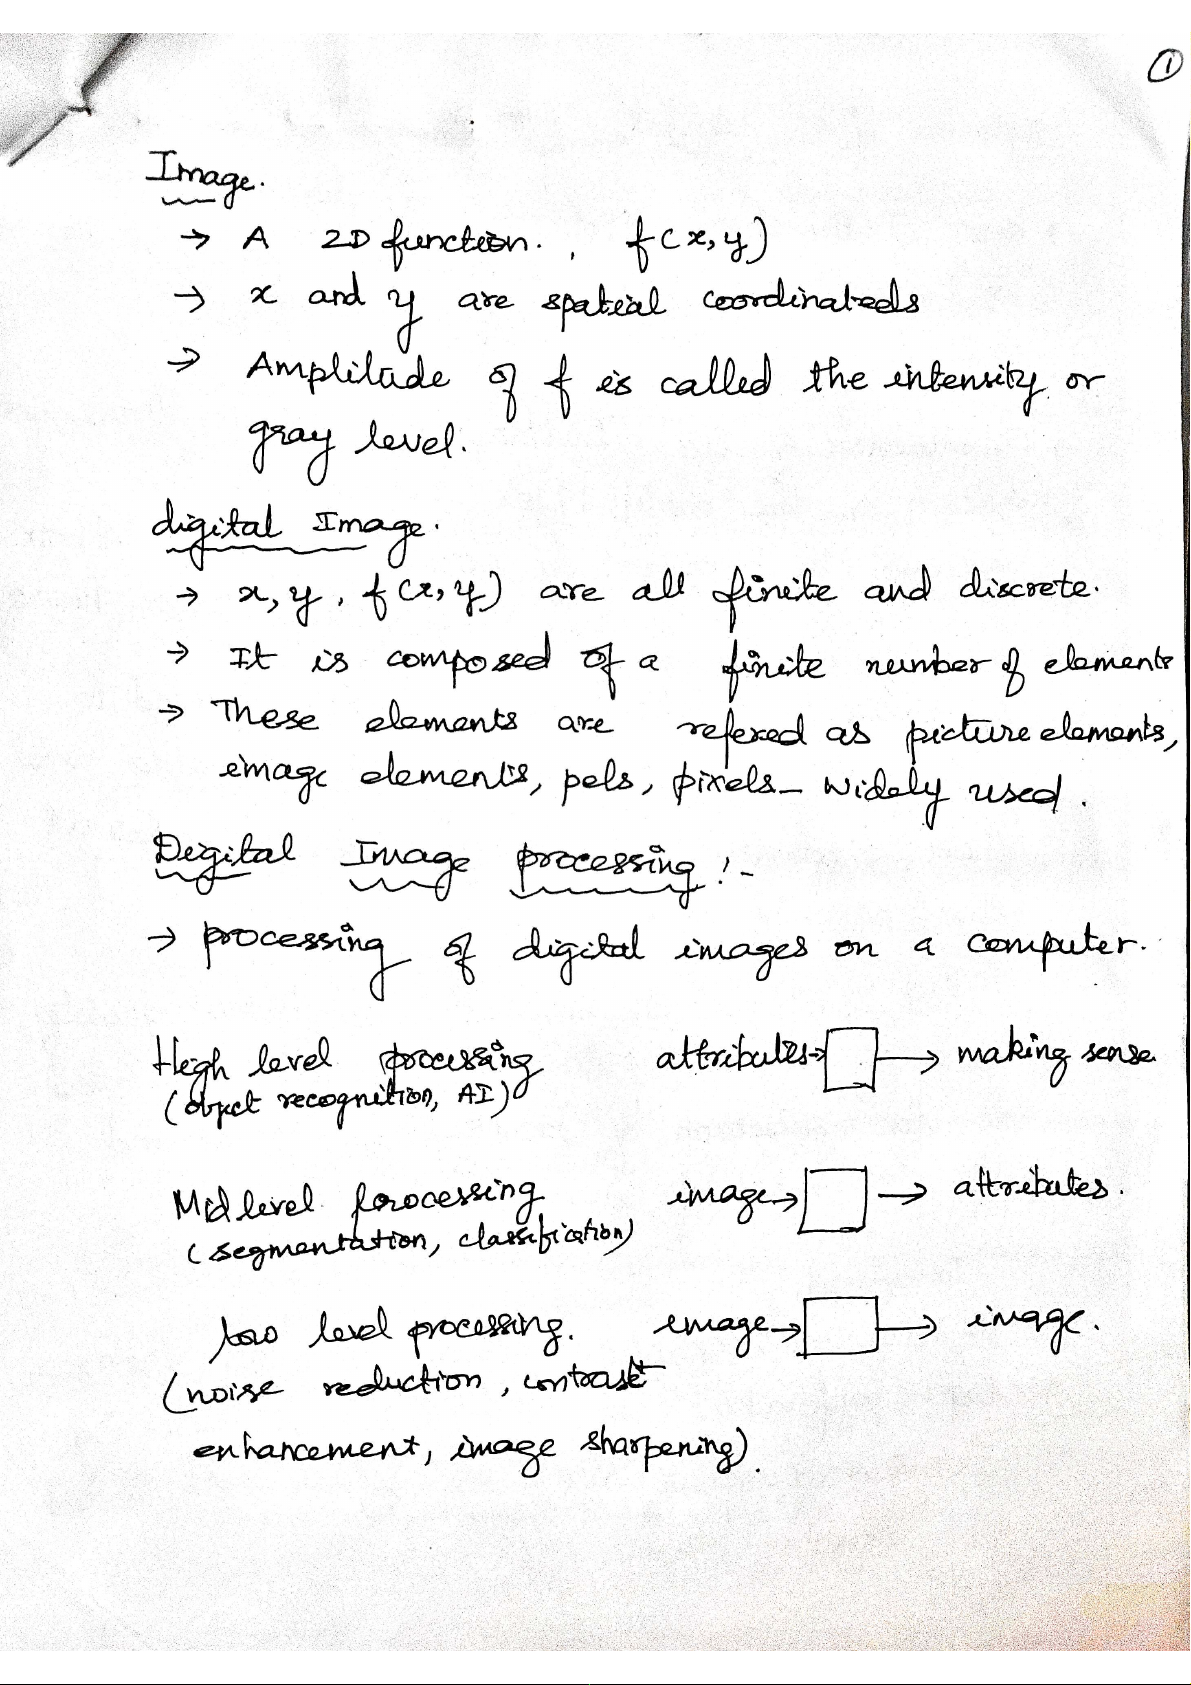 ①
Image.
→ A 2D function., f(x,y)
→ x and y are spatial coordinateds
→ Amplitude of f is called the intensity or
gray level.
digital Image.
→ x, y, f(x,y) are all finite and discrete.
→ It is composed of a finite number of elements
→ These elements are refered as picture elements,
image elements, pels, pixels - Widely used.
Digital Image processing:-
→ processing of digital images on a computer.
High level processing attributes→ → making sense
(object recognition, AI)
Mid level processing image→ → attributes.
(segmentation, classification)
low level processing. image→ → image.
(noise reduction, contrast
enhancement, image sharpening).